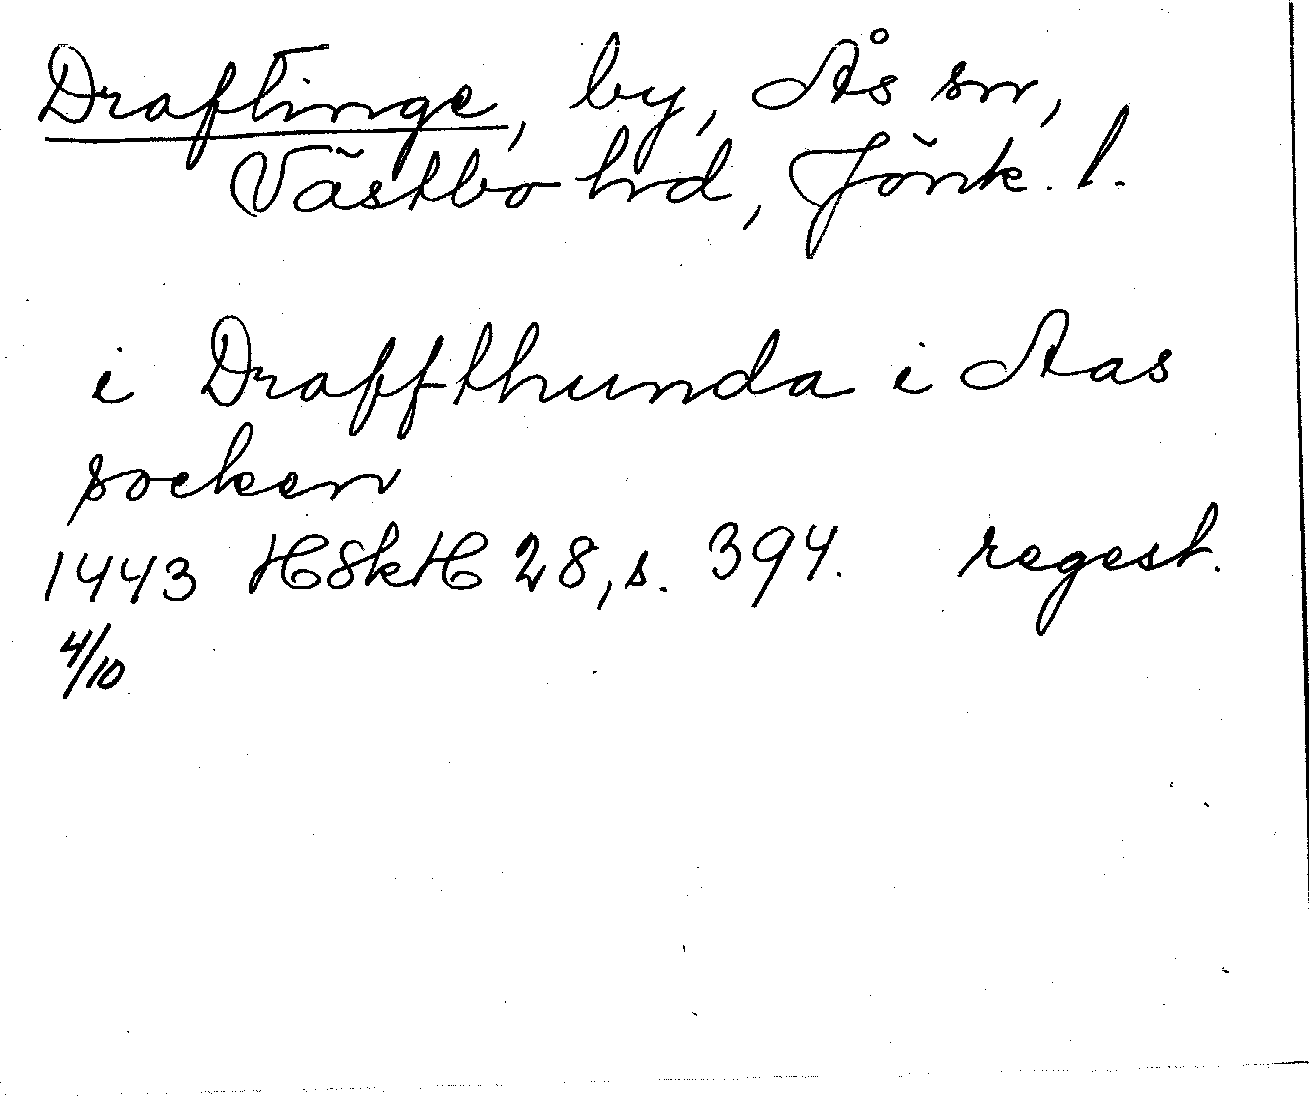 Draftinge, by, Ås sn,
Västbo hrd, Jönk. l.
i Draffthunda i Aas
socken
1443 HSkH 28, s. 394. regest.
4/10